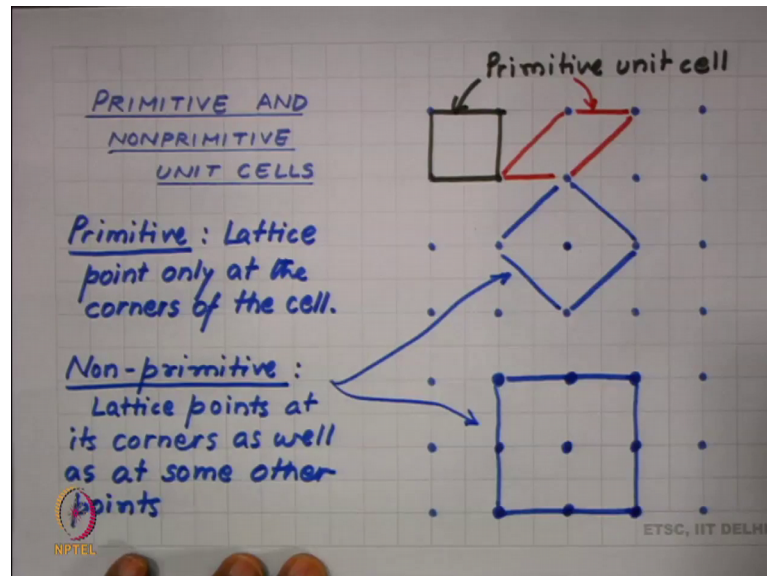 Primitive unit cell
PRIMITIVE AND
NONPRIMITIVE
UNIT CELLS
Primitive : Lattice
point only at the
corners of the cell.
Non-primitive :
Lattice points at
its corners as well
as at some other
points
NPTEL
ETSC, IIT DELHI